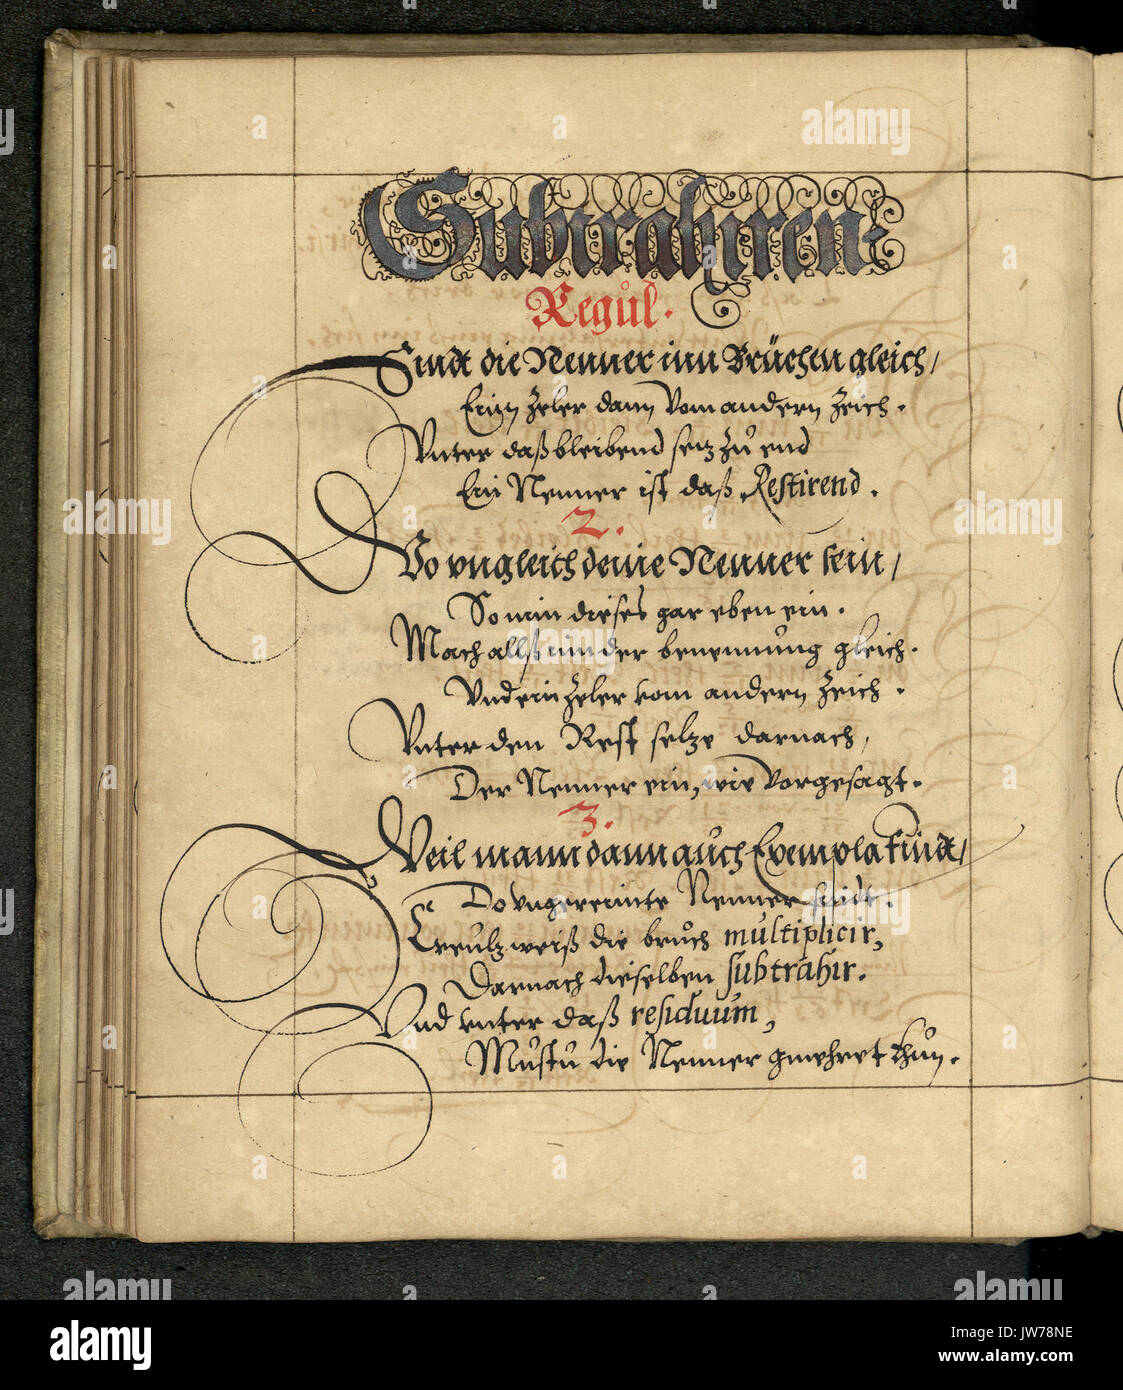 Subtrahiren.
Regul.
Sindt die Nenner inn Brüchen gleich/
Einn Zeler dann vom andern Zeich.
Vnter daß bleibend setz zu end
Ein Nenner ist daß Restirend.
2.
Wo vngleich deine Nenner sein/
So nim dieses gar eben ein.
Mach allß inn der benennung gleich.
Vnd ein Zeler vom andern Zeich.
Vnter den Rest setze darnach/
Der Nenner ein, wie vorgesagt.
3.
Weil mann dann auch Exempla findt/
Do vngereimte Nenner sindt.
Creutzweiß die bruch multiplicir,
Darnach dieselben subtrahir.
Vnd vnter daß residuum,
Mustu die Nenner gmehret thun.
alamy
a
JW78NE
www.alamy.com